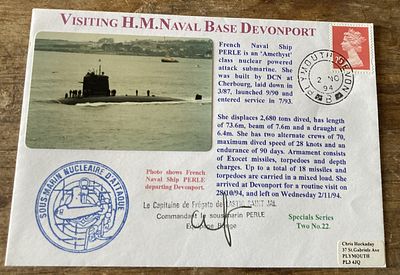 VISITING H.M.NAVAL BASE DEVONPORT
French Naval Ship
PERLE is an 'Amethyst'
class nuclear powered
attack submarine. She
was built by DCN at
Cherbourg, laid down in
3/87, launched 9/90 and
entered service in 7/93.
She displaces 2,680 tons dived, has length
of 73.6m, beam of 7.6m and a draught of
6.4m. She has two alternate crews of 70,
maximum dived speed of 28 knots and an
endurance of 90 days. Armament consists
of Exocet missiles, torpedoes and depth
charges. Up to a total of 18 missiles and
torpedoes are carried in a mixed load. She
arrived at Devonport for a routine visit on
28/10/94, and left on Wednesday 2/11/94.
Photo shows French
Naval Ship PERLE
departing Devonport.
PLYMOUTH DEVON
2 NO
94
B
SOUS-MARIN NUCLEAIRE D'ATTAQUE
Le Capitaine de Frégate de
Commandant le sous-marin PERLE
Equipage Rouge
Specials Series
Two No.22.
Chris Hockaday
37 St.Gabriels Ave
PLYMOUTH
PL3 4JQ